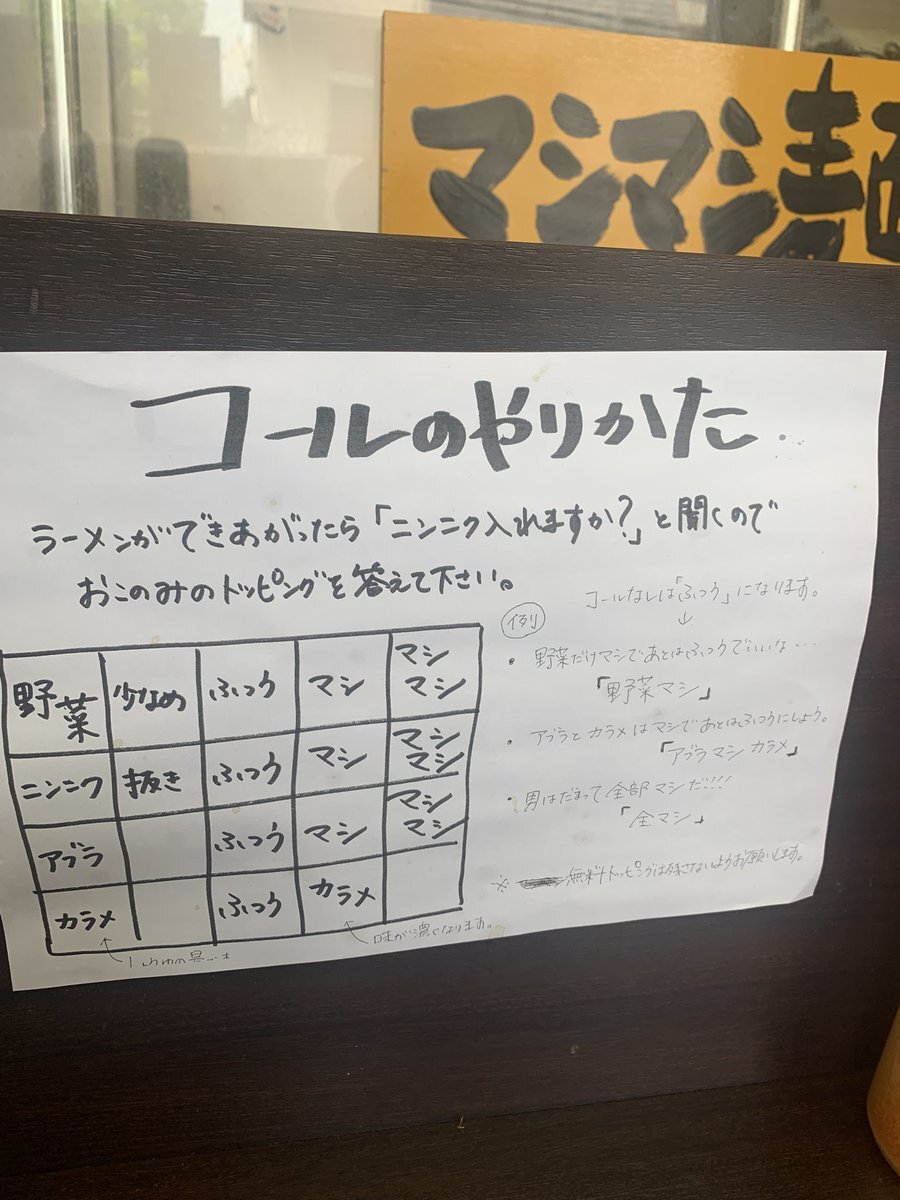 マシマシ
コールのやりかた
ラーメンができあがったら「ニンニク入れますか?」と聞くので
おこのみのトッピングを答えて下さい。
野菜 少なめ ふつう マシ マシマシ
ニンニク 抜き ふつう マシ マシマシ
アブラ ふつう マシ マシマシ
カラメ ふつう カラメ
味が濃くなります。
コールなしは「ふつう」になります。
↓
例
・野菜だけマシであとはふつうでいいな…
「野菜マシ」
・アブラとカラメはマシであとはふつうにしよう。
「アブラマシカラメ」
・男はだまって全部マシだ!!!
「全マシ」
※無料トッピングは残さないようお願いします。